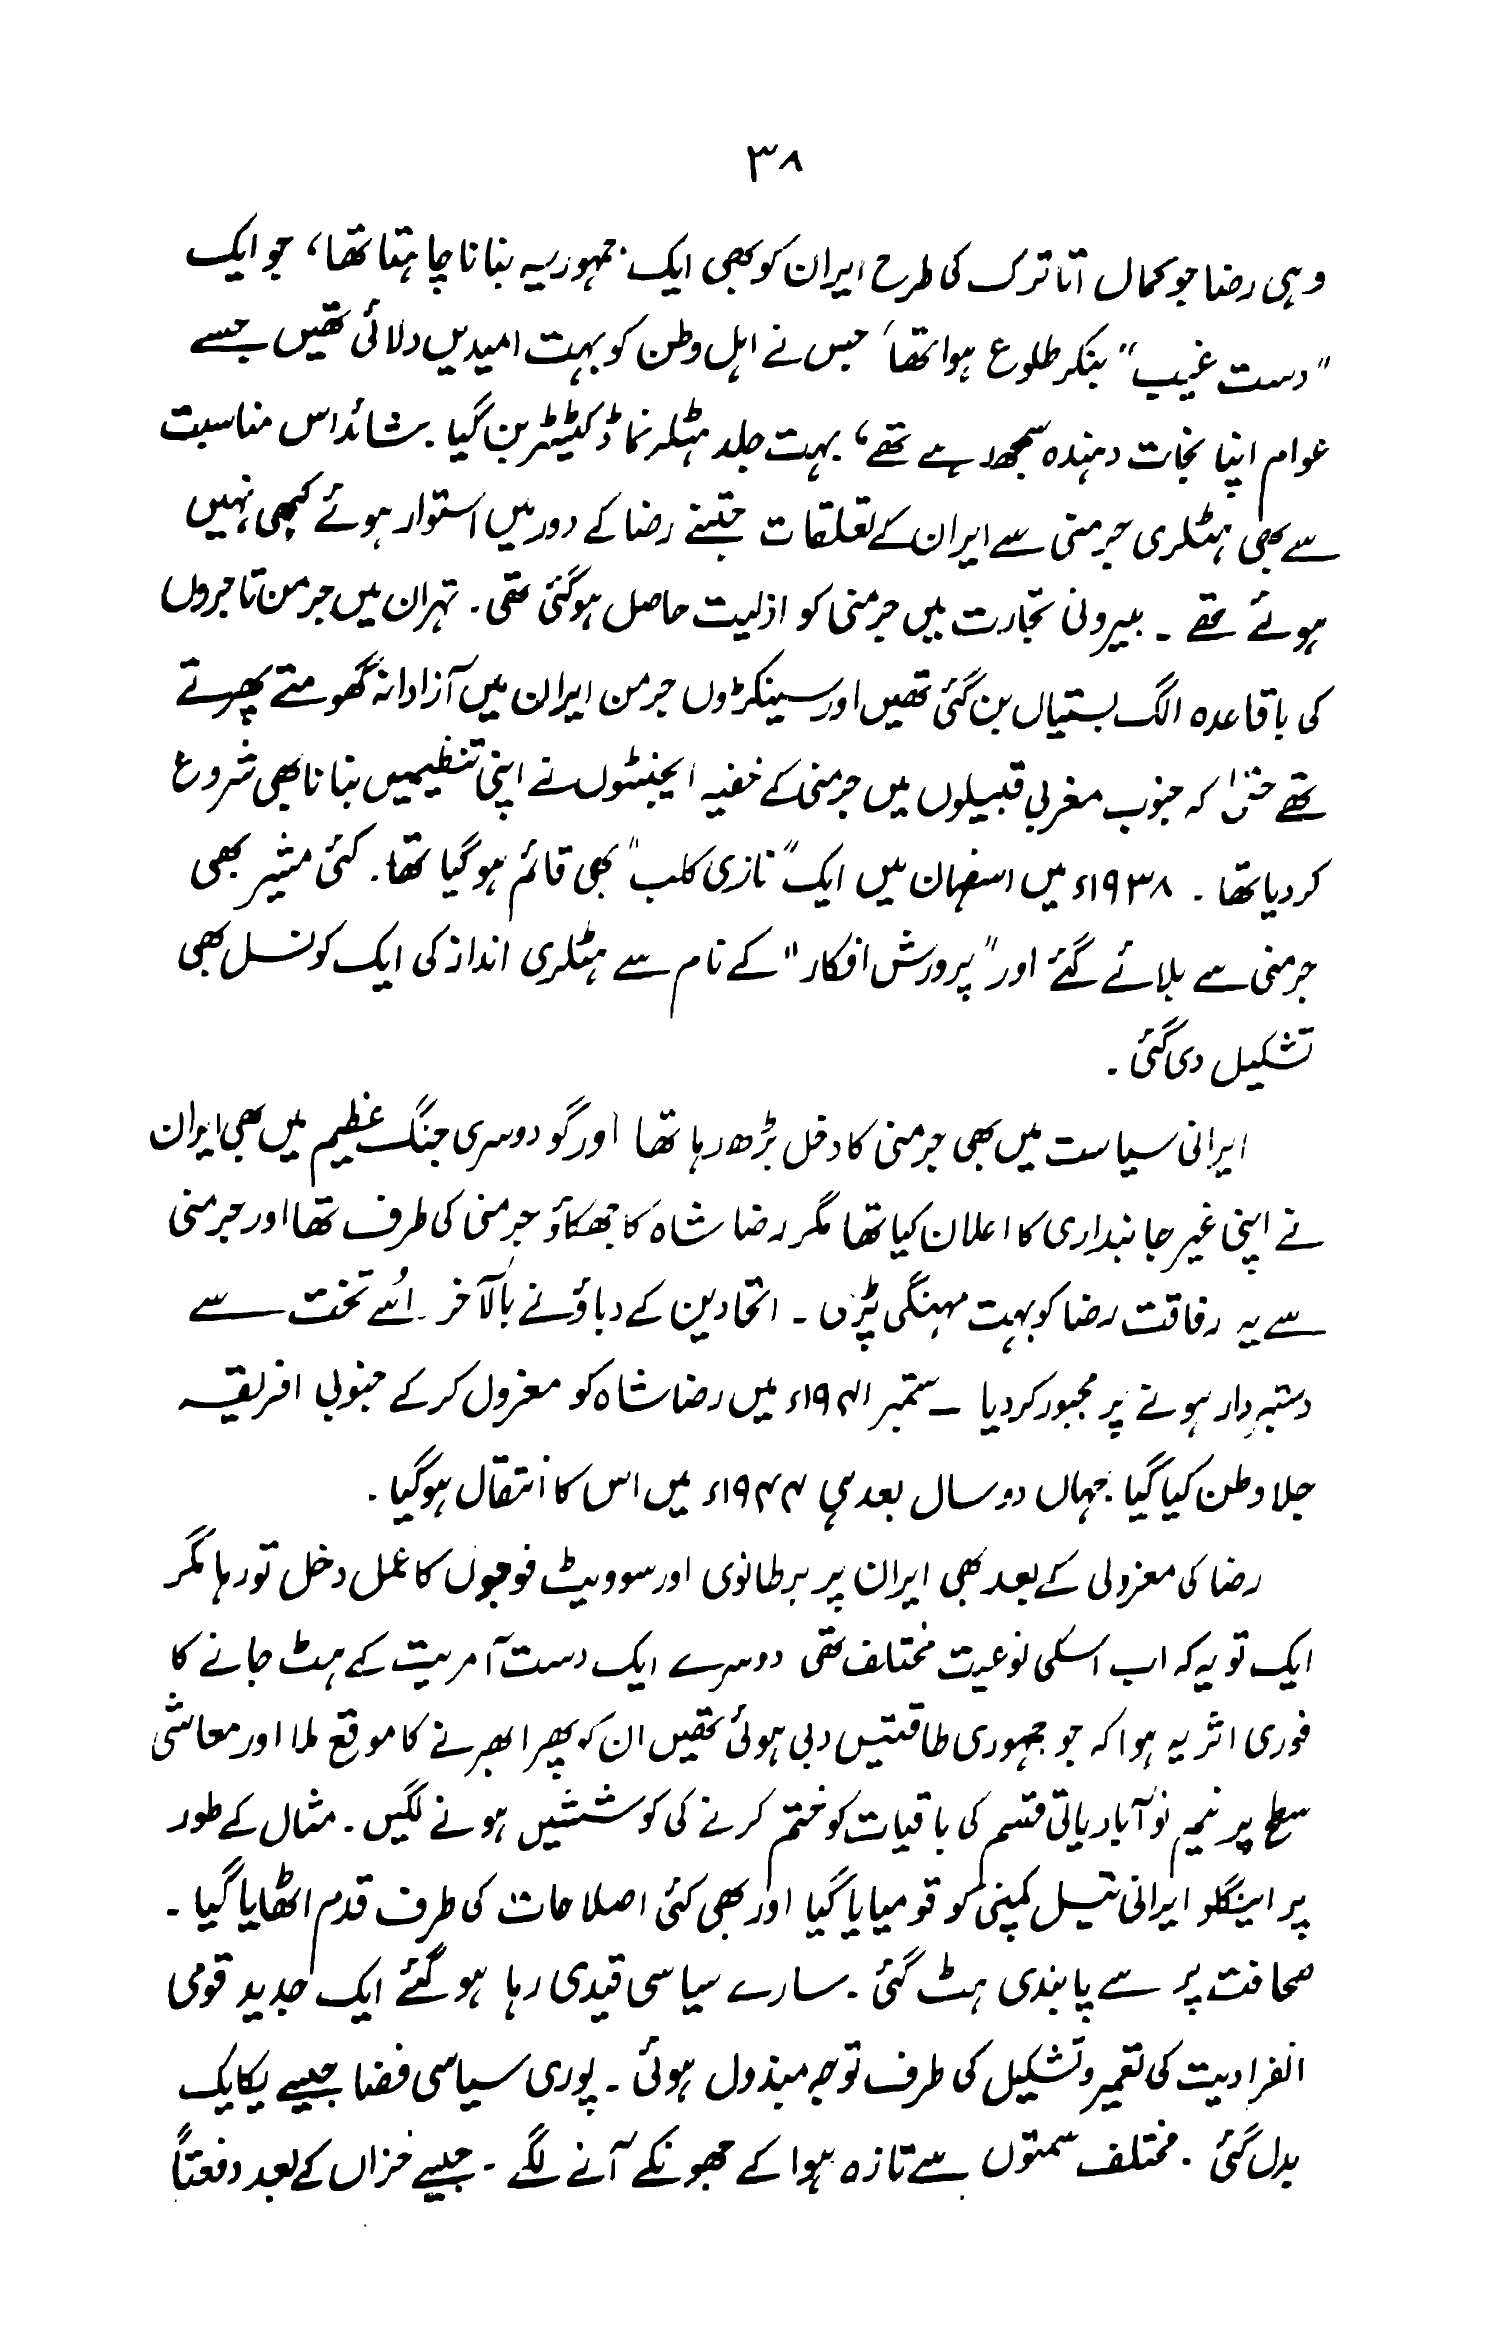 ۳۸
وہی رضا جو کمال اتاترک کی طرح ایران کو بھی ایک جمہوریہ بنانا چاہتا تھا، جو ایک
"دست غیب" بنکر طلوع ہوا تھا جس نے اہل وطن کو بہت امیدیں دلائی تھیں جسے
عوام اپنا نجات دہندہ سمجھ رہے تھے، بہت جلد ہٹلر نما ڈکٹیٹر بن گیا۔ شائد اس مناسبت
سے بھی ہٹلری جرمنی سے ایران کے تعلقات جتنے رضا کے دور میں استوار ہوئے کبھی نہیں
ہوئے تھے ۔ بیرونی تجارت میں جرمنی کو اولیت حاصل ہوگئی تھی۔ تہران میں جرمن تاجروں
کی باقاعدہ الگ بستیاں بن گئی تھیں اور سینکڑوں جرمن ایران میں آزادانہ گھومتے پھرتے
تھے حتیٰ کہ جنوب مغربی قبیلوں میں جرمنی کے خفیہ ایجنٹوں نے اپنی تنظیمیں بنانا بھی شروع
کردیا تھا ۔ ۱۹۳۸ء میں اسفہان میں ایک "نازی کلب" بھی قائم ہو گیا تھا۔ کئی مشیر بھی
جرمنی سے بلائے گئے اور "پرورش افکار" کے نام سے ہٹلری انداز کی ایک کونسل بھی
تشکیل دی گئی ۔
ایرانی سیاست میں بھی جرمنی کا دخل بڑھ رہا تھا اور گو دوسری جنگ عظیم میں بھی ایران
نے اپنی غیر جانبداری کا اعلان کیا تھا مگر رضا شاہ کا جھکاؤ جرمنی کی طرف تھا اور جرمنی
سے یہ رفاقت رضا کو بہت مہنگی پڑی ۔ اتحادین کے دباؤ نے بالآخر اُسے تخت سے
دستبردار ہونے پر مجبور کر دیا ۔ ستمبر ۱۹۴۱ء میں رضا شاہ کو معزول کر کے جنوبی افریقہ
جلا وطن کیا گیا جہاں دو سال بعد ہی ۱۹۴۴ء میں اس کا انتقال ہوگیا ۔
رضا کی معزولی کے بعد بھی ایران پر برطانوی اور سوویٹ فوجوں کا عمل دخل تو رہا مگر
ایک تو یہ کہ اب اسکی نوعیت مختلف تھی دوسرے ایک دست آمریت کے ہٹ جانے کا
فوری اثر یہ ہوا کہ جو جمہوری طاقتیں دبی ہوئی تھیں ان کو پھر ابھرنے کا موقع ملا اور معاشی
سطح پر نیم نوآبادیاتی قسم کی باقیات کو ختم کرنے کی کوششیں ہونے لگیں۔ مثال کے طور
پر اینگلو ایرانی تیل کمپنی کو قومیایا گیا اور بھی کئی اصلاحات کی طرف قدم اٹھایا گیا ۔
صحافت پر سے پابندی ہٹ گئی ۔ سارے سیاسی قیدی رہا ہو گئے ایک جدید قومی
انفرادیت کی تعمیر و تشکیل کی طرف توجہ مبذول ہوئی ۔ پوری سیاسی فضا جیسے یکایک
بدل گئی ۔ مختلف سمتوں سے تازہ ہوا کے جھونکے آنے لگے ۔ جیسے خزاں کے بعد دفعتاً